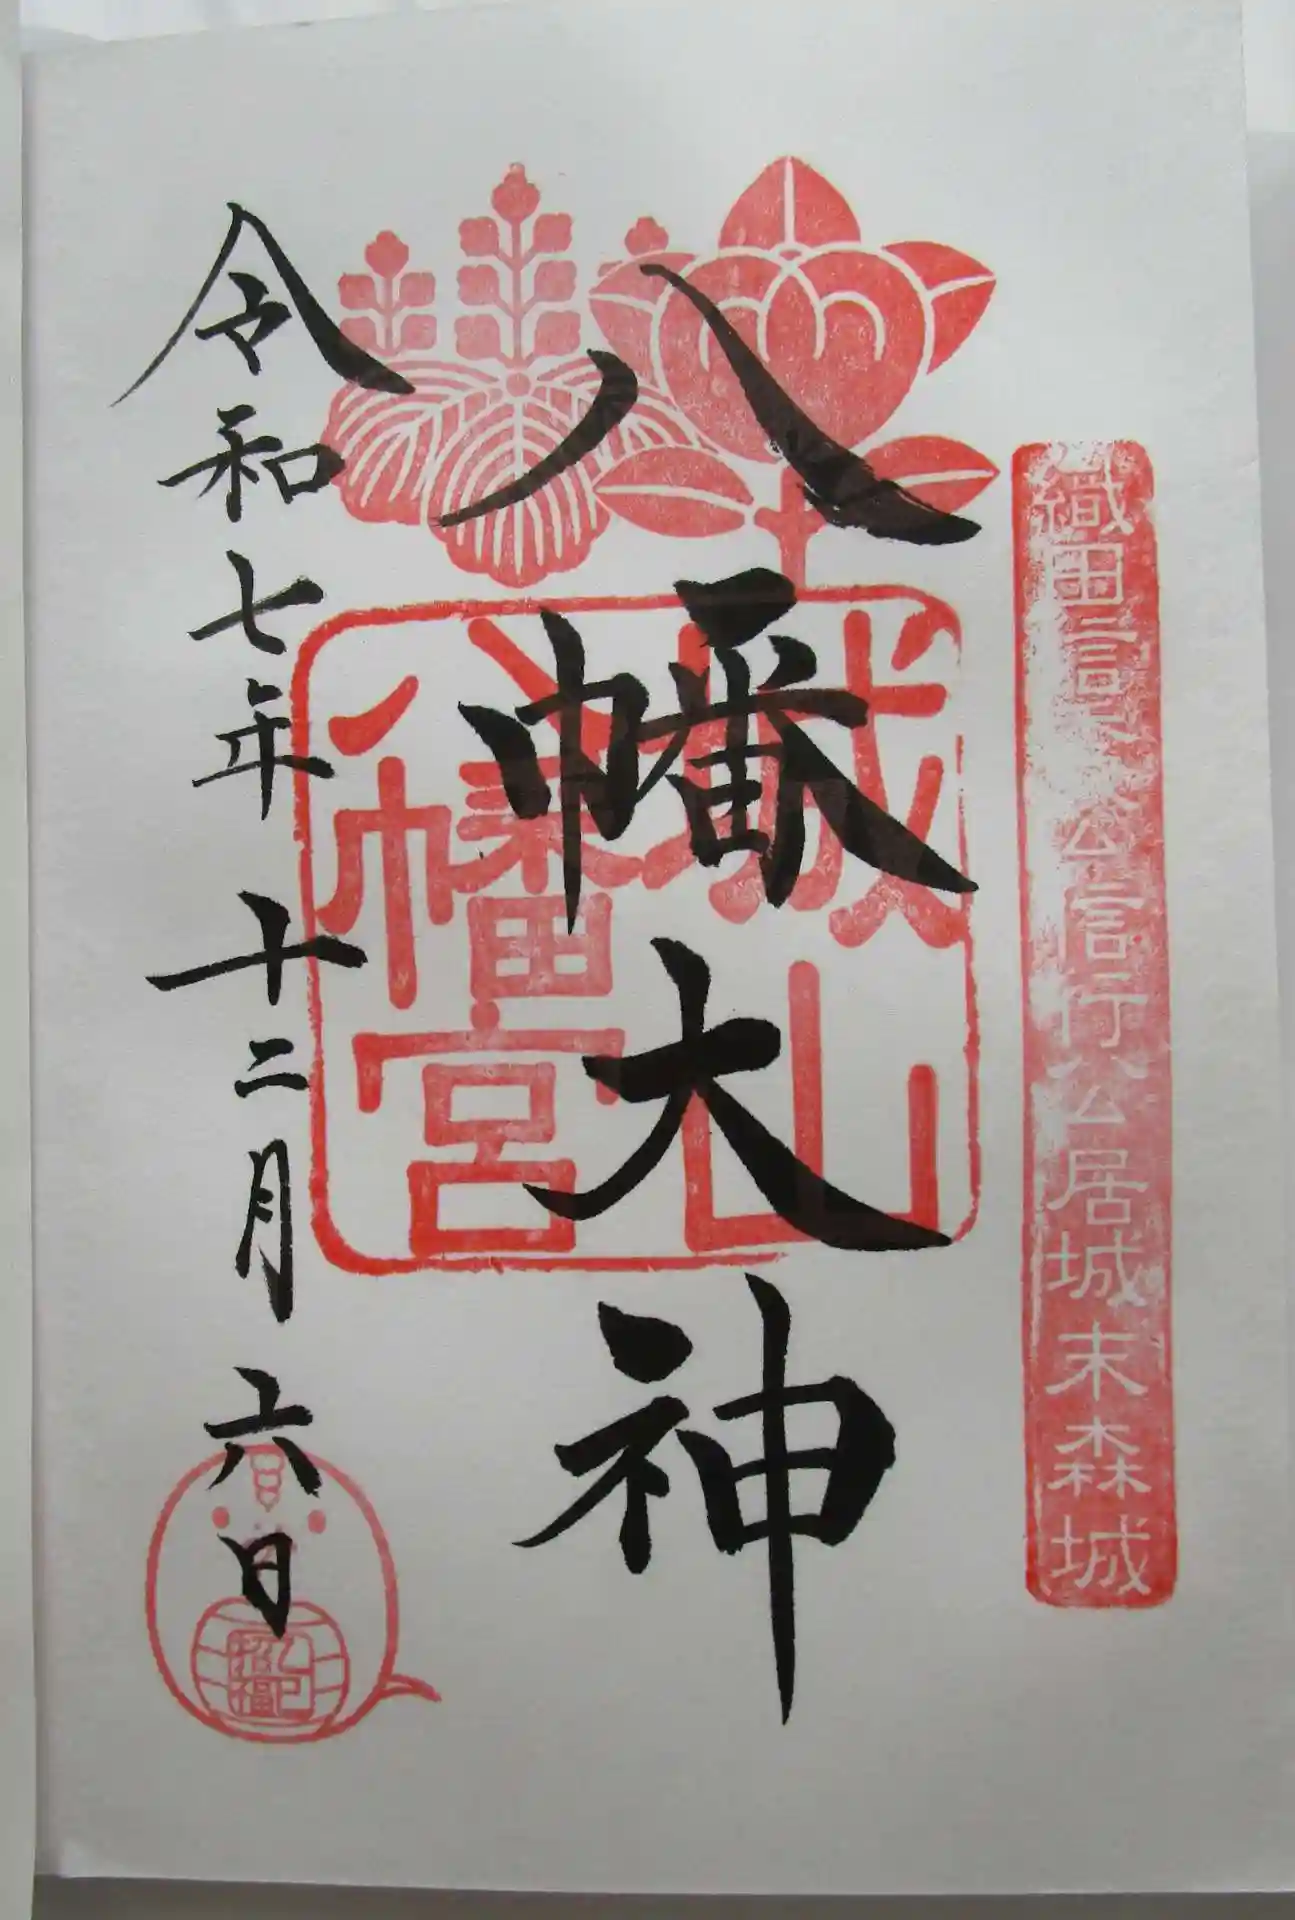 織田信秀公信行公居城末森城
八幡大神
城山
八幡宮
令和七年十二月六日
乙巳
招福